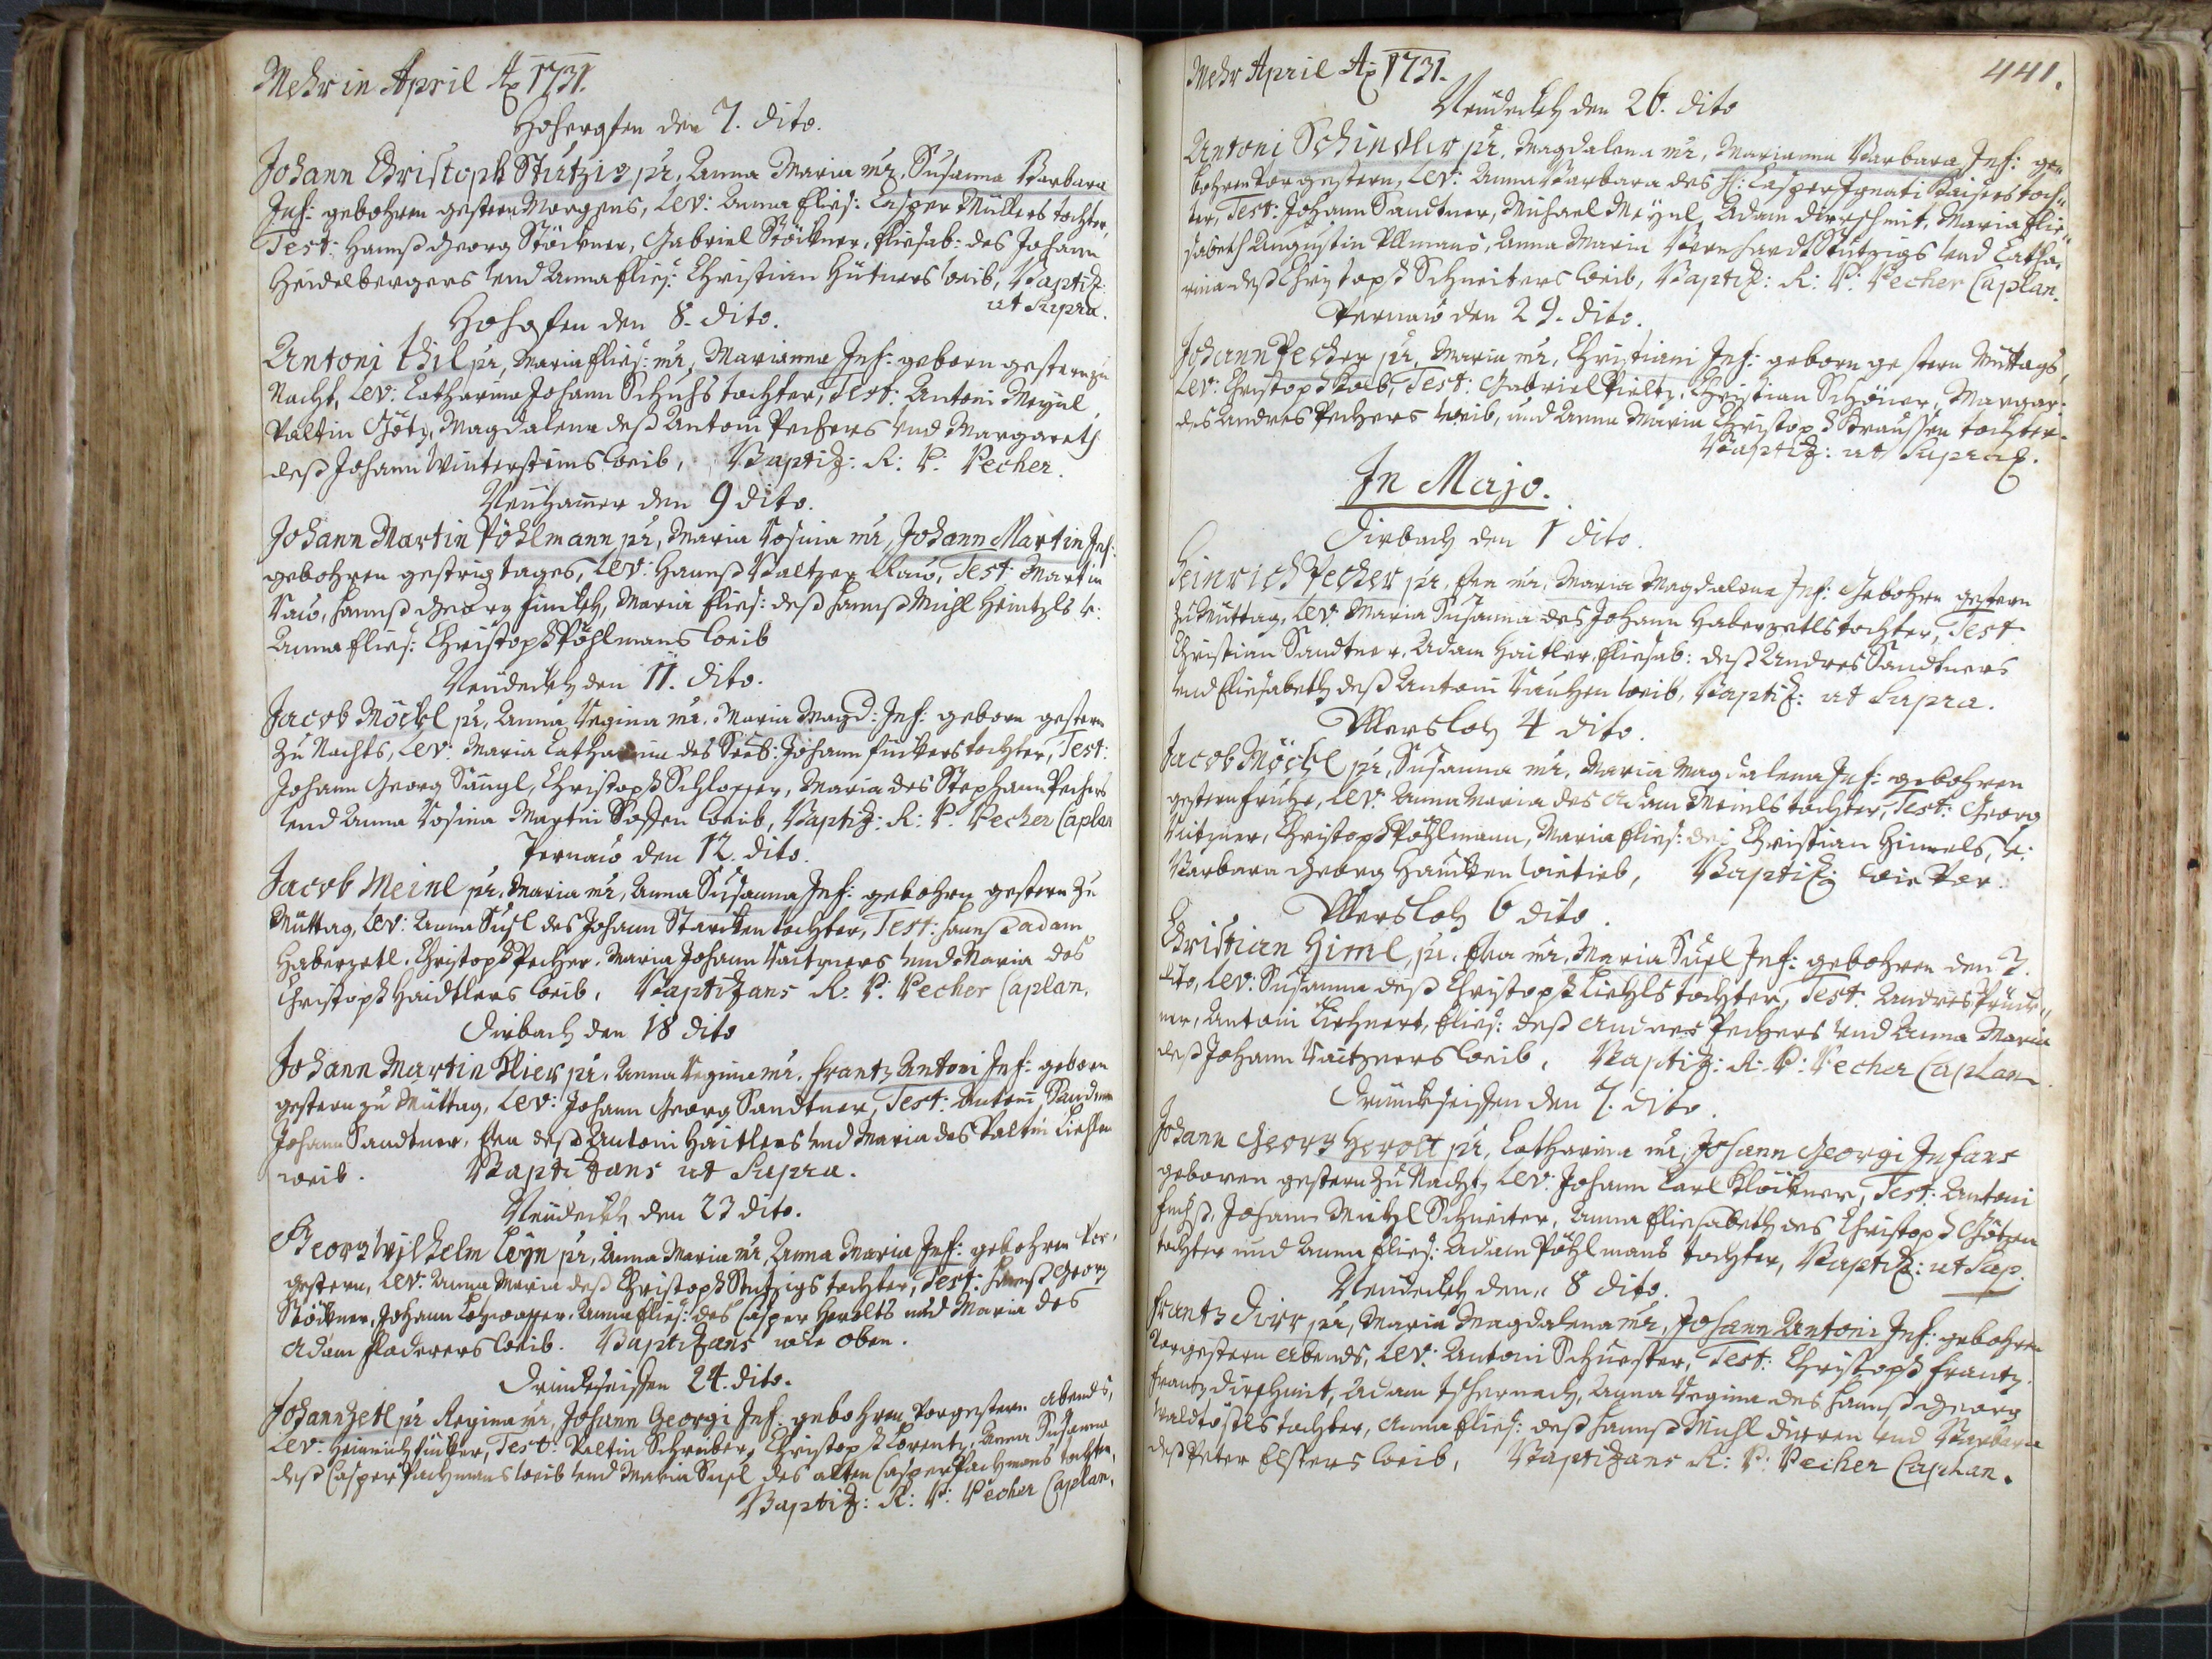 Mehr in April Ao 1731.
Hohofen den 7. dito.
Johann Christoph Stützig pr, Anna Maria mr, Susanna Barbara
Inf: gebohren gestern Morgens, Lev: Anna Elies: Casper Müllers tochter,
Test: Hannß Georg Stöckner, Gabriel Stöckner, Eliesab: des Johann
Heidelbergers und Anna Elies: Christian Hütners weib, Baptiz:
ut Supra.
Hohofen den 8. dito.
Antoni Thil pr, Maria Elies: mr, Marianna Inf: geborn gestern zu
Nacht, Lev: Catharina Johann Schuhs tochter, Test: Antoni Meynl
Valtin Götz, Magdalena deß Antoni Pechers und Margareth
deß Johann Wintersteins weib, Baptiz: R: P. Pecher.
Neuhamer den 9 dito.
Johann Martin Pöhlmann pr, Maria Rosina mr, Johann Martin Inf:
gebohren gestrig tages, Lev: Hannß Baltzer Rau, Test Martin
Rau, Hannß Georg Finckh, Maria Elies: deß Hannß Michl Heintzls v:
Anna Elies: Christoph Pöhlmans weib
Neudeckh den 11. dito.
Jacob Möckl pr, Anna Regina mr. Maria Magd: Inf: geborn gestern
zu Nachts, Lev: Maria Catharina des Seeb: Johann Finckers tochter, Test:
Johann Georg Sängl, Christoph Schlosser, Maria des Stephann Pechers
und Anna Rosina Martin Sossen weib, Baptiz: R: P. Pecher Caplan
Pernau den 12. dito.
Jacob Meinl pr, Maria mr, Anna Susanna Inf: gebohren gestern zu
Müttag, Lev: Anna Susl des Johann Starcken tochter, Test: Hannß adam
Haberzetl, Christoph Pecher, Maria Johann Raitzners und Maria des
Christoph Haidtlers weib, Baptizans R: P: Pecher Caplan.
Dirbach den 18 dito
Johann Martin Klier pr. Anna Regina mr. Frantz Antoni Inf: geborn
gestern zu Müttag, Lev: Johann Georg Sandtner, Test: Antoni Sandtner
Johann Sandtner, Eva deß Antoni Haitlers und Maria des Valtin Liehlen
weib. Baptizans ut Supra.
Neudeckh den 23 dito.
Georg Wilhelm Leyn pr, Anna Maria mr, Anna Maria Inf: gebohren vor,
gestern, Lev: Anna Maria deß Christoph Stutzigs tochter, Test: Hannß Georg
Stöckner, Johann Anna Elies: des Casper Herolts und Maria des
Adam Fladerers weib. Baptizans wie oben.
Drinckseissen 24. dito.
Johann Zetl pr Regina mr, Johann Georgi Inf: gebohren vorgestern abends,
Lev: Heinrich Fücker, Test: Valtin Schreiber, Christoph Lorentz, Anna Susanna
deß Casper Pachmans weib und Maria Susl des alten Casper Pachmans tochter,
Baptiz: R: P: Pecher Caplan.
Mehr April Ao 1731.
441.
Neudeckh den 26. dito
Antoni Schindler pr, Magdalena mr, Marianna Barbara Inf: ge„
bohren vorgestern, Lev: Anna Barbara des H: Casper Ignati Kaisers toch„
ter, Test: Johann Sandtner, Michael Meynl, Adam Dirschmit, Maria Elie„
sabeth Augustin Ullmans, Anna Maria Bernhardt Stutzigs und Catha„
rina deß Christoph Schneiters weib, Baptiz: R: P: Pecher Caplan.
Pernau den 29. dito.
Johann Pecher pr, Maria mr, Christiani Inf: geborn gestern Müttags,
Lev: Christoph Kolb, Test: Gabriel Pieltz, Christian Schöner, Margar:
des Andres Pechers weib, und Anna Maria Christoph Straussen tochter.
Baptiz: ut Supra.
In Majo.
Dirbach den 1 dito.
Heinrich Pecher pr. Eva mr, Maria Magdalena Inf: Gebohrn gestern
zu Müttag, Lev. Maria Susanna des Johann Haberzetls tochter, Test
Christian Sandtner, Adam Haitler, Eliesab: deß Andres Sandtners
und Eliesabeth deß Antoni weib, Baptiz: ut Supra.
Ullersloh 4 dito.
Jacob Möckl pr, Susanna mr, Maria Magdalena Inf: gebohren
gestern fruhe, Lev: Anna Maria des Adam Meinels tochter, Test: Georg
Christoph Pöhlmann, Maria Elies: des Christian Himels, v:
Barbara Georg Haucken wietieb, Baptiz: wie vor.
Ullersloh 6 dito.
Christian Himl, pr. Eva mr, Maria Susl Inf: gebohren den 3.
dito, Lev: Susanna deß Christoph Liehls tochter, Test: Andres
ner, Antoni Liehnert, Elies: deß Andres Pechers und Anna Maria
deß Johann Raitzners weib, Baptiz: R: P: Pecher Caplan
Drinckseissen den 7. dito.
Johann Georg Herolt pr, Catharina mr, Johann Georgi Infans
geboren gestern zu Nacht, Lev: Johann Carl Klöckner, Test: Antoni
Fuchß, Johann Michl Schneiter, Anna Eliesabeth des Christoph Götzen
tochter und Anna Elies: Adam Pöhlmans tochter, Baptiz: ut Sup:
Neudeckh den 8 dito.
Frantz Dirr pr, Maria Magdalena mr, Johann Antoni Inf: gebohren
vorgestern abends, Lev: Antoni Schuester, Test: Christoph Frantz,
Frantz Dirschmit, Adam Tschernich, Anna Regina des Hannß Georg
tochter, Anna Elies: deß Hannß Michl Dirren und Barbara
deß Peter Elsters weib, Baptizans R: P: Pecher Caplan.